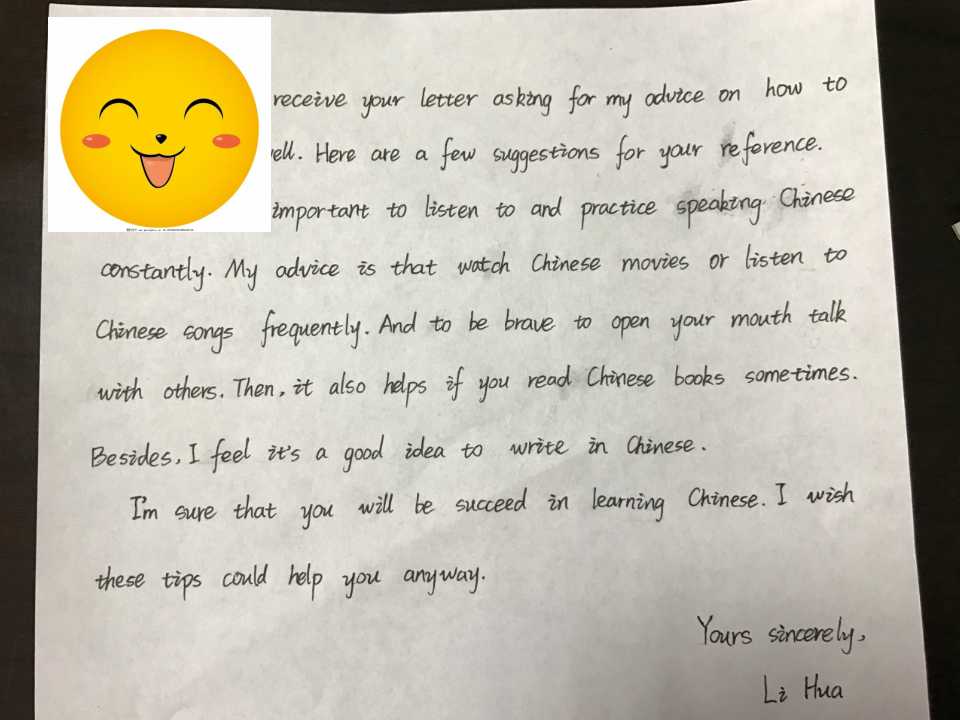 receive your letter asking for my advice on how to
ell. Here are a few suggestions for your reference.
important to listen to and practice speaking Chinese
constantly. My advice is that watch Chinese movies or listen to
Chinese songs frequently. And to be brave to open your mouth talk
with others. Then, it also helps if you read Chinese books sometimes.
Besides, I feel it's a good idea to write in Chinese.
I'm sure that you will be succeed in learning Chinese. I wish
these tips could help you anyway.
Yours sincerely,
Li Hua